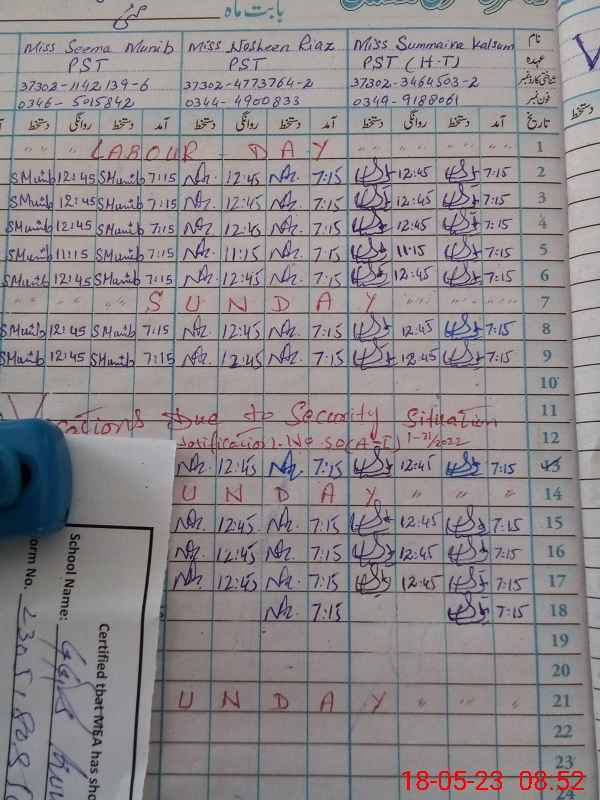 بابت ماہ مئی
Miss Seema Munib Miss Nosheen Riaz Miss Summaira Kalsum نام
PST PST PST (H.T) عہدہ
37302-1142139-6 37302-4773764-2 37302-3464503-2 شناختی کارڈ نمبر
0346-5015842 0344-4900833 0349-9188061 فون نمبر
دستخط روانگی دستخط آمد دستخط روانگی دستخط آمد دستخط روانگی دستخط آمد تاریخ
" " LABOUR - DAY " " " " 1
SMunib 12:45 SMunib 7:15 Nr. 12:45 Nr. 7:15 12:45 7:15 2
SMunib 12:45 SMunib 7:15 Nr. 12:45 Nr. 7:15 12:45 7:15 3
SMunib 12:45 SMunib 7:15 Nr. 12:45 Nr. 7:15 12:45 7:15 4
SMunib 11:15 SMunib 7:15 Nr. 11:15 Nr. 7:15 11:15 7:15 5
SMunib 12:45 SMunib 7:15 Nr. 12:45 Nr. 7:15 12:45 7:15 6
" " " " S U N D A Y " " " " 7
SMunib 12:45 SMunib 7:15 Nr. 12:45 Nr. 7:15 12:45 7:15 8
SMunib 12:45 SMunib 7:15 Nr. 12:45 Nr. 7:15 12:45 7:15 9
10
cations Due to Security Situation 11
Notification). No SO(A-I) 1-31/2022 12
Nr. 12:45 Nr. 7:15 12:45 7:15 13
U N D A Y " " " 14
Nr. 12:45 Nr. 7:15 12:45 7:15 15
Nr. 12:45 Nr. 7:15 12:45 7:15 16
Nr. 12:45 Nr. 7:15 12:45 7:15 17
Nr. 7:15 7:15 18
19
20
U N D A Y " " " 21
22
23
24
دستخط
Certified that MEA has sho
School Name: GGPS
orm No.
18-05-23 08.52